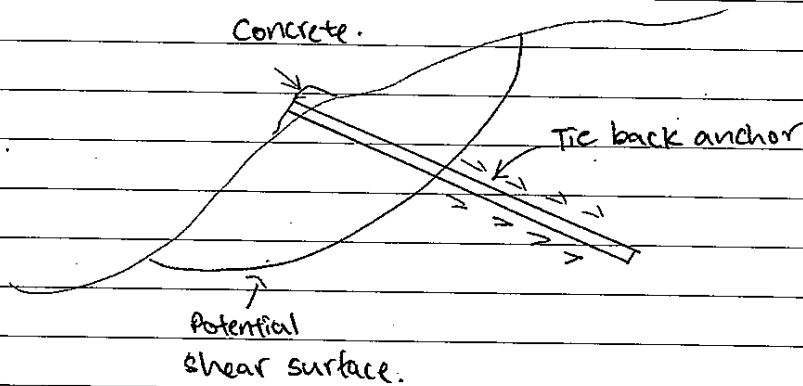 Concrete.
Tie back anchor
Potential
shear surface.